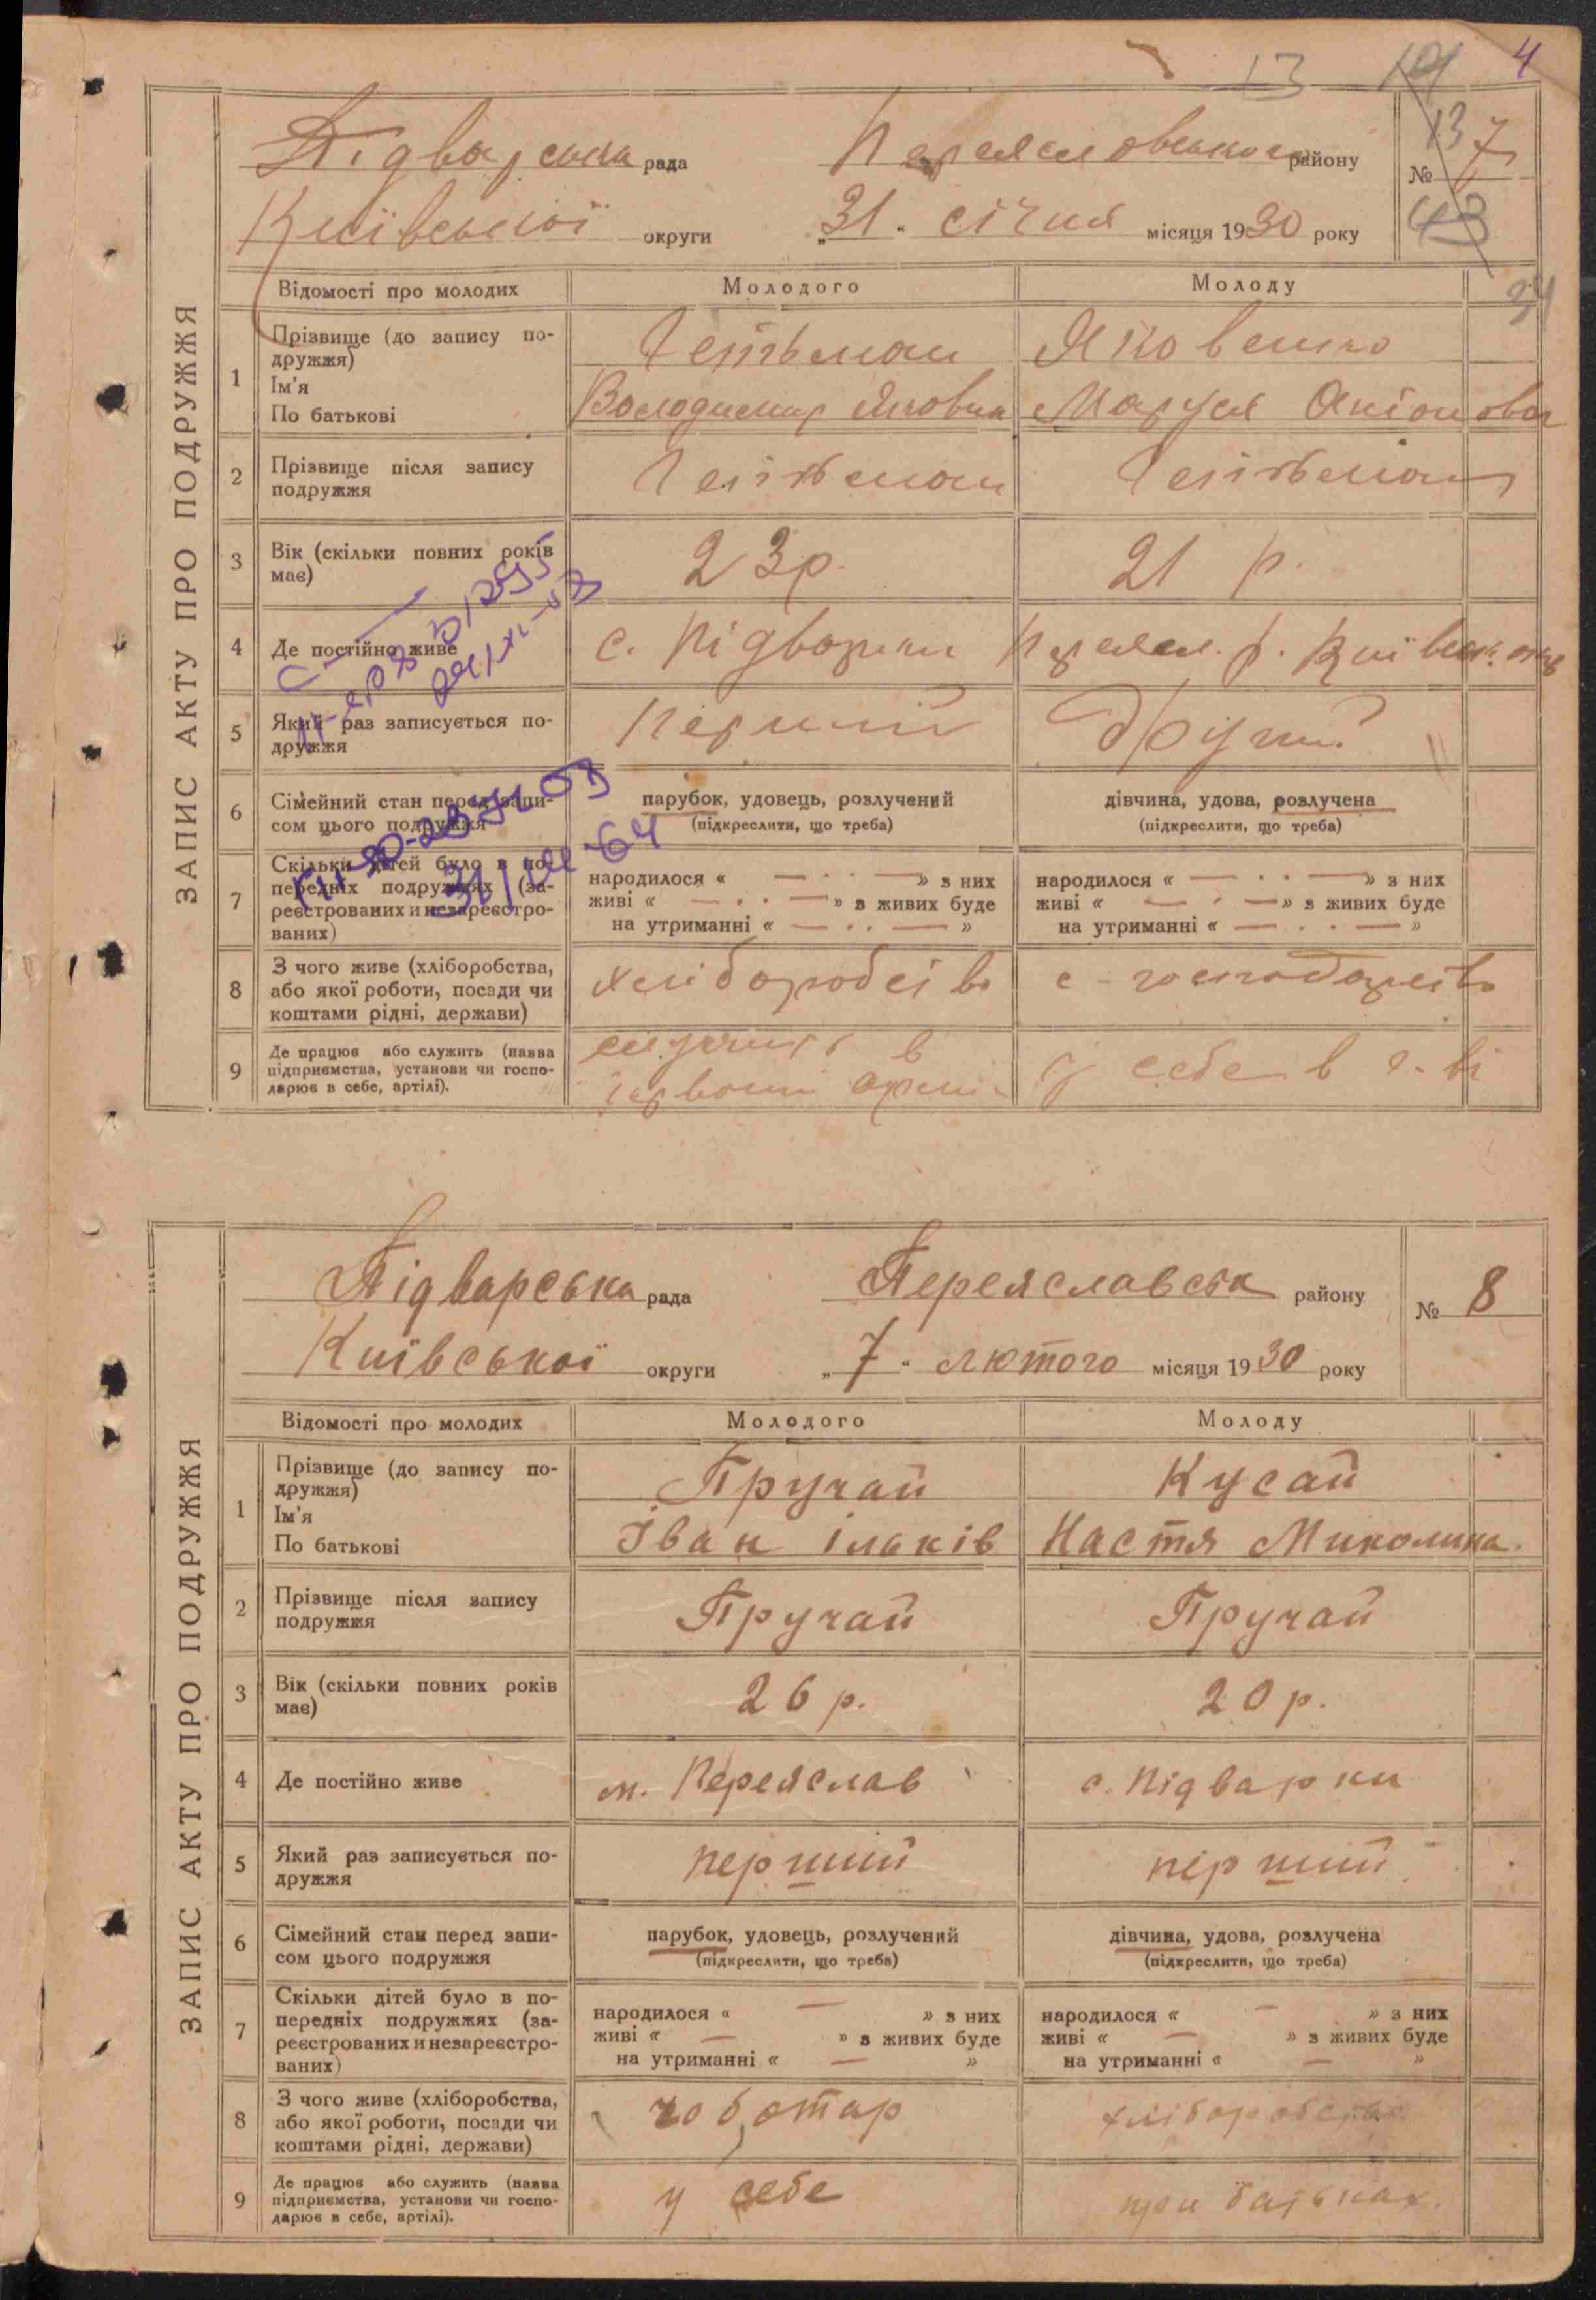 13 4
Підварська рада Переясловського району
137
№ 7
Київської округи „31“ січня місяця 1930 року
43
ЗАПИС АКТУ ПРО ПОДРУЖЖЯ
Відомості про молодих Молодого Молоду
34
1 Прізвище (до запису по-
дружжя)
Ім'я
По батькові
Гетьман Яковенко
Володимир Якович Маруся Антонова
2 Прізвище після запису
подружжя
Гетьман Гетьман
3 Вік (скільки повних років
має)
23 р. 21 р.
4 Де постійно живе с. Підварки Переясл. р. Київськ. окр
5 Який раз записується по-
дружжя
перший другий
6 Сімейний стан перед запи-
сом цього подружжя
парубок, удовець, розлучений дівчина, удова, розлучена
(підкреслити, що треба) (підкреслити, що треба)
7 Скільки дітей було в по-
передніх подружжях (за-
реєстрованих и незареєстро-
ваних)
народилося « — » з них народилося « — » з них
живі « — » з живих буде живі « — » з живих буде
на утриманні « — » на утриманні « — »
8 З чого живе (хліборобства,
або якої роботи, посади чи
коштами рідні, держави)
хліборобство с-господарство
9 Де працює або служить (назва
підприємства, установи чи госпо-
дарює в себе, артілі).
служить в у себе в г-ві
червоній армії
Підварська рада Переяславськ району № 8
Київської округи „7“ лютого місяця 1930 року
ЗАПИС АКТУ ПРО ПОДРУЖЖЯ
Відомості про молодих Молодого Молоду
1 Прізвище (до запису по-
дружжя)
Ім'я
По батькові
Пручай Кусай
Іван Ільків Настя Миколина.
2 Прізвище після запису
подружжя
Пручай Пручай
3 Вік (скільки повних років
має)
26 р. 20 р.
4 Де постійно живе м. Переяслав с. Підварки
5 Який раз записується по-
дружжя
перший пірший
6 Сімейний стан перед запи-
сом цього подружжя
парубок, удовець, розлучений дівчина, удова, розлучена
(підкреслити, що треба) (підкреслити, що треба)
7 Скільки дітей було в по-
передніх подружжях (за-
реєстрованих и незареєстро-
ваних)
народилося « — » з них народилося « — » з них
живі « — » з живих буде живі « — » з живих буде
на утриманні « — » на утриманні « — »
8 З чого живе (хліборобства,
або якої роботи, посади чи
коштами рідні, держави)
чоботар хліборобство
9 Де працює або служить (назва
підприємства, установи чи госпо-
дарює в себе, артілі).
у себе при батьках.